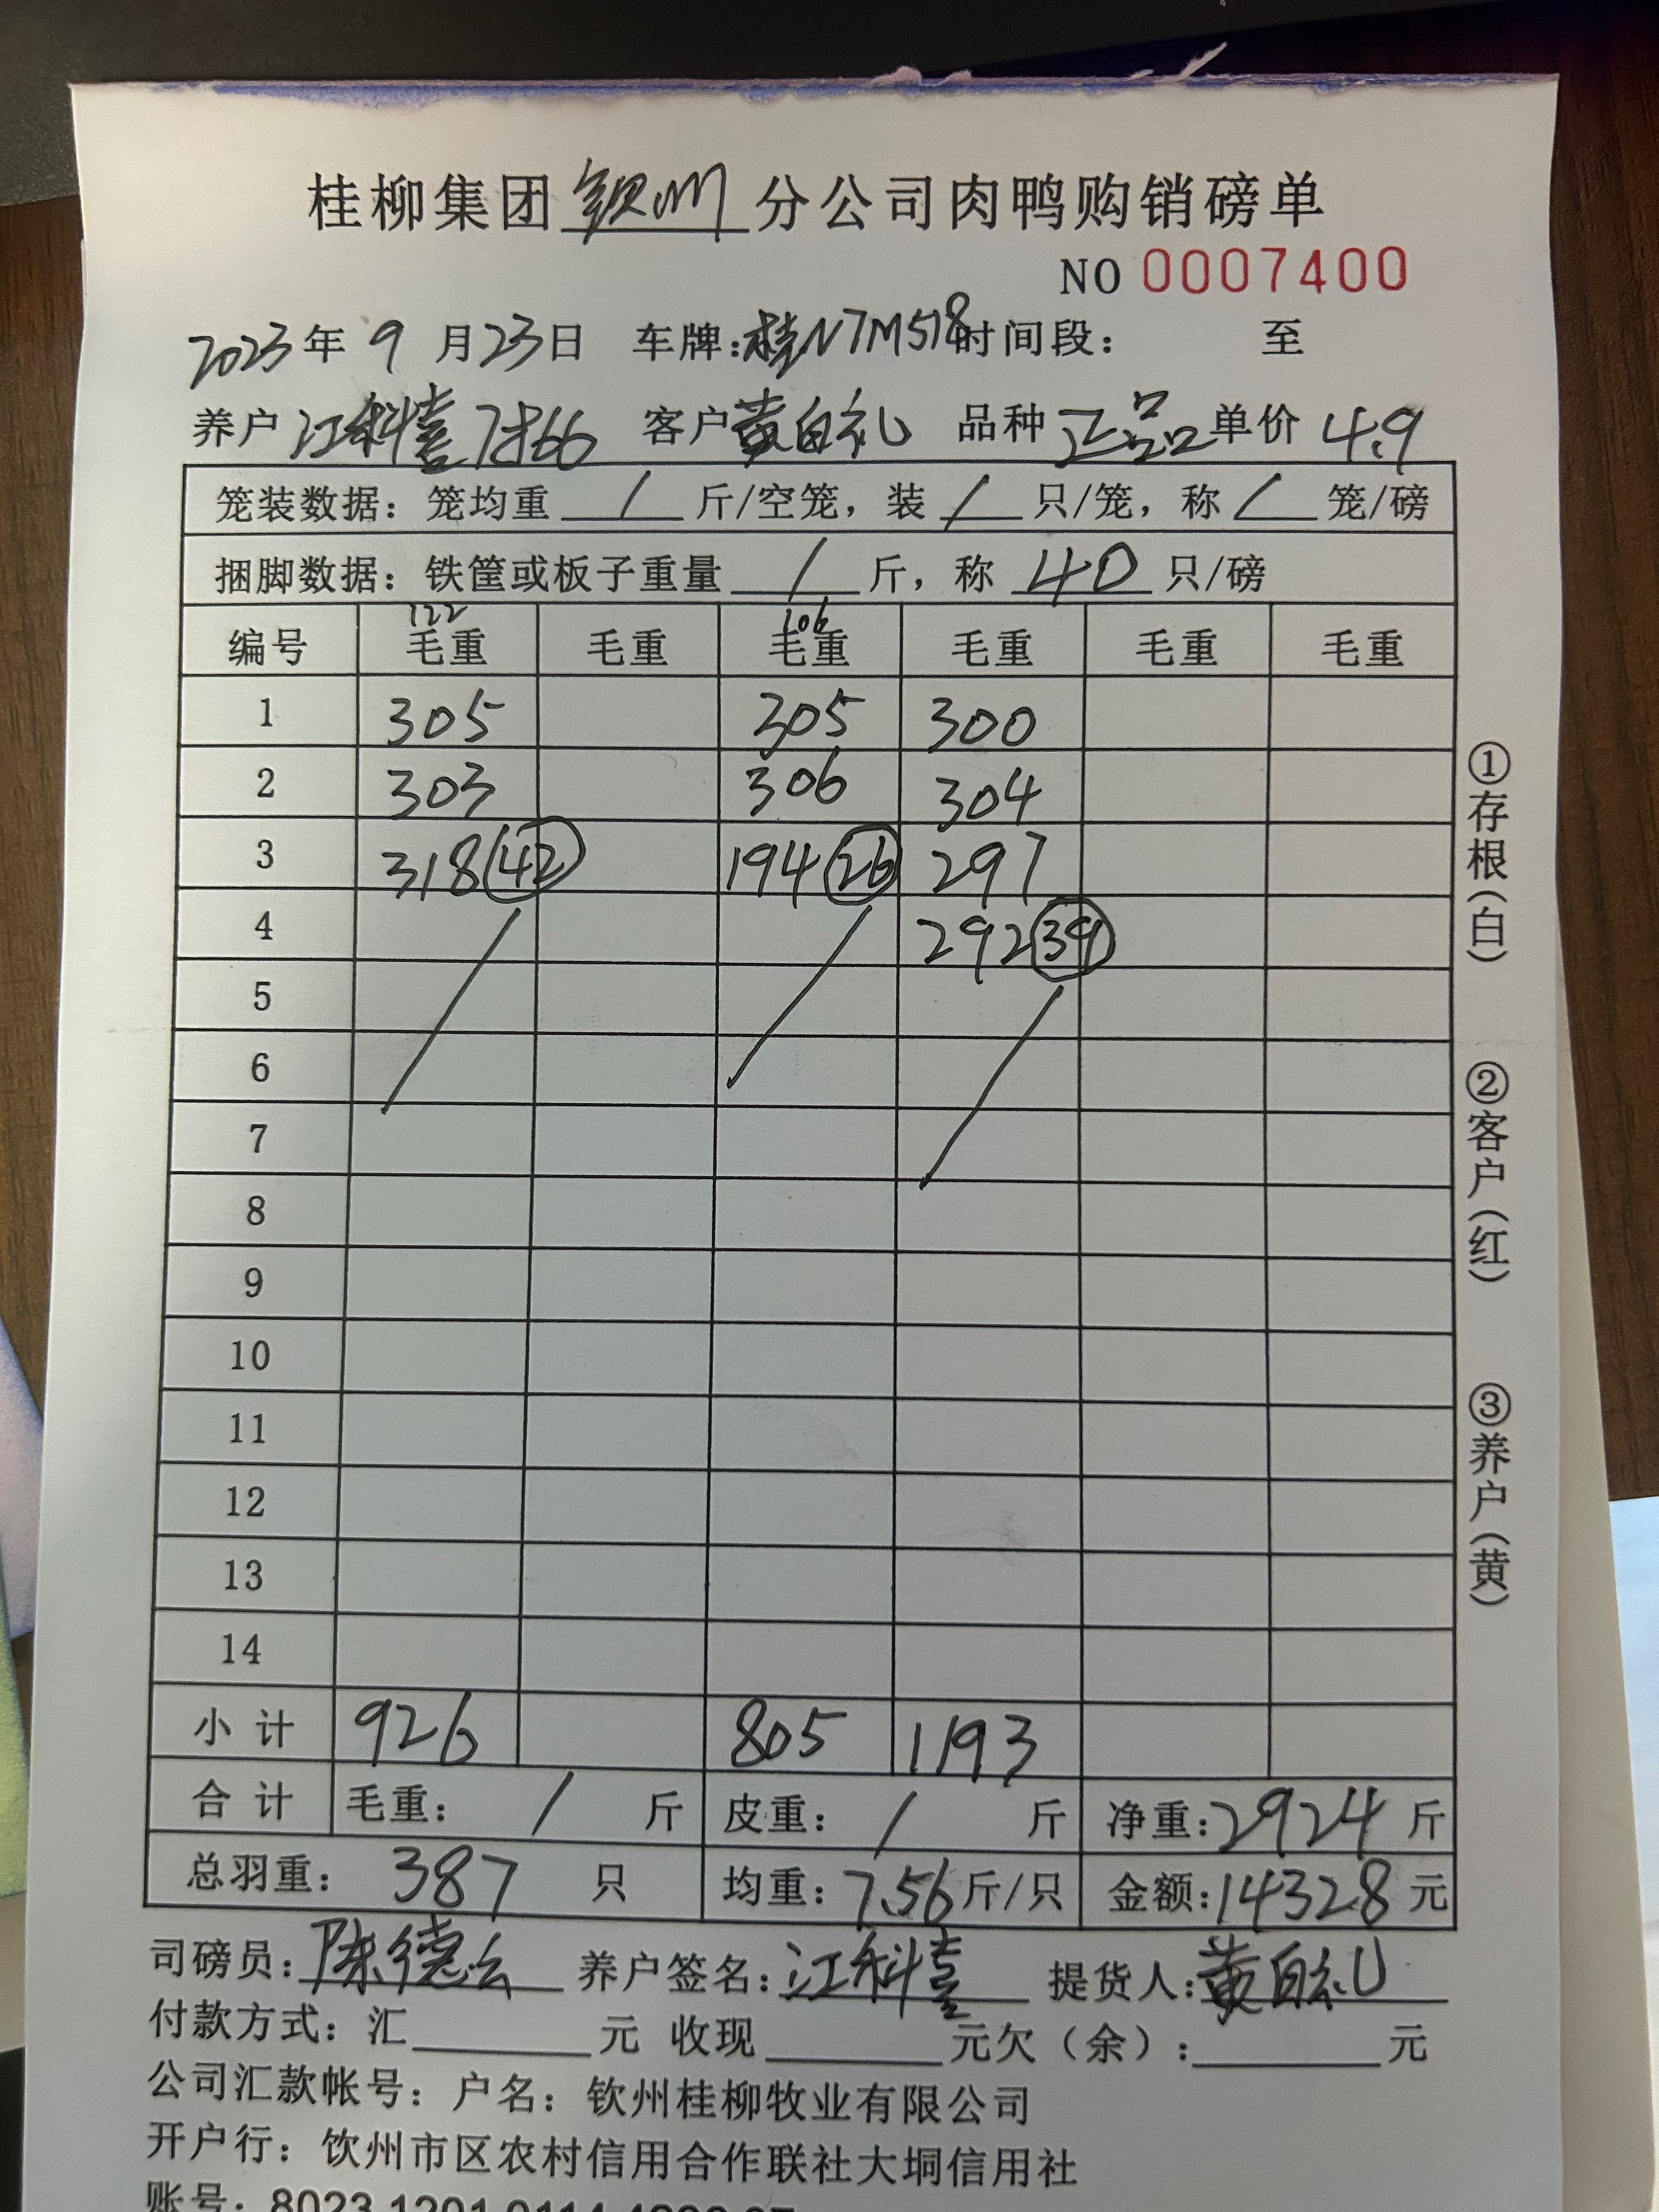 桂柳集团钦州分公司肉鸭购销磅单
NO 0007400
2023年9月23日 车牌:桂N7M518时间段: 至
养户江科喜7栋66 客户黄自礼 品种正品单价4.9
笼装数据: 笼均重/斤/空笼, 装/只/笼, 称/笼/磅
捆脚数据: 铁筐或板子重量/斤, 称40只/磅
122 106
编号 毛重 毛重 毛重 毛重 毛重 毛重
1 305 305 300
2 303 306 304
3 318 42 194 26 297
4 292 39
5
6
7
8
9
10
11
12
13
14
小计 926 805 1193
合计 毛重: / 斤 皮重: / 斤 净重:2924斤
总羽重: 387 只 均重:7.56斤/只 金额:14328元
司磅员:陈德云 养户签名:江科喜 提货人:黄自礼
付款方式: 汇 元 收现 元欠(余): 元
公司汇款帐号: 户名: 钦州桂柳牧业有限公司
开户行: 饮州市区农村信用合作联社大垌信用社
账号: 8023 1201 0114
①存根(白)
②客户(红)
③养户(黄)